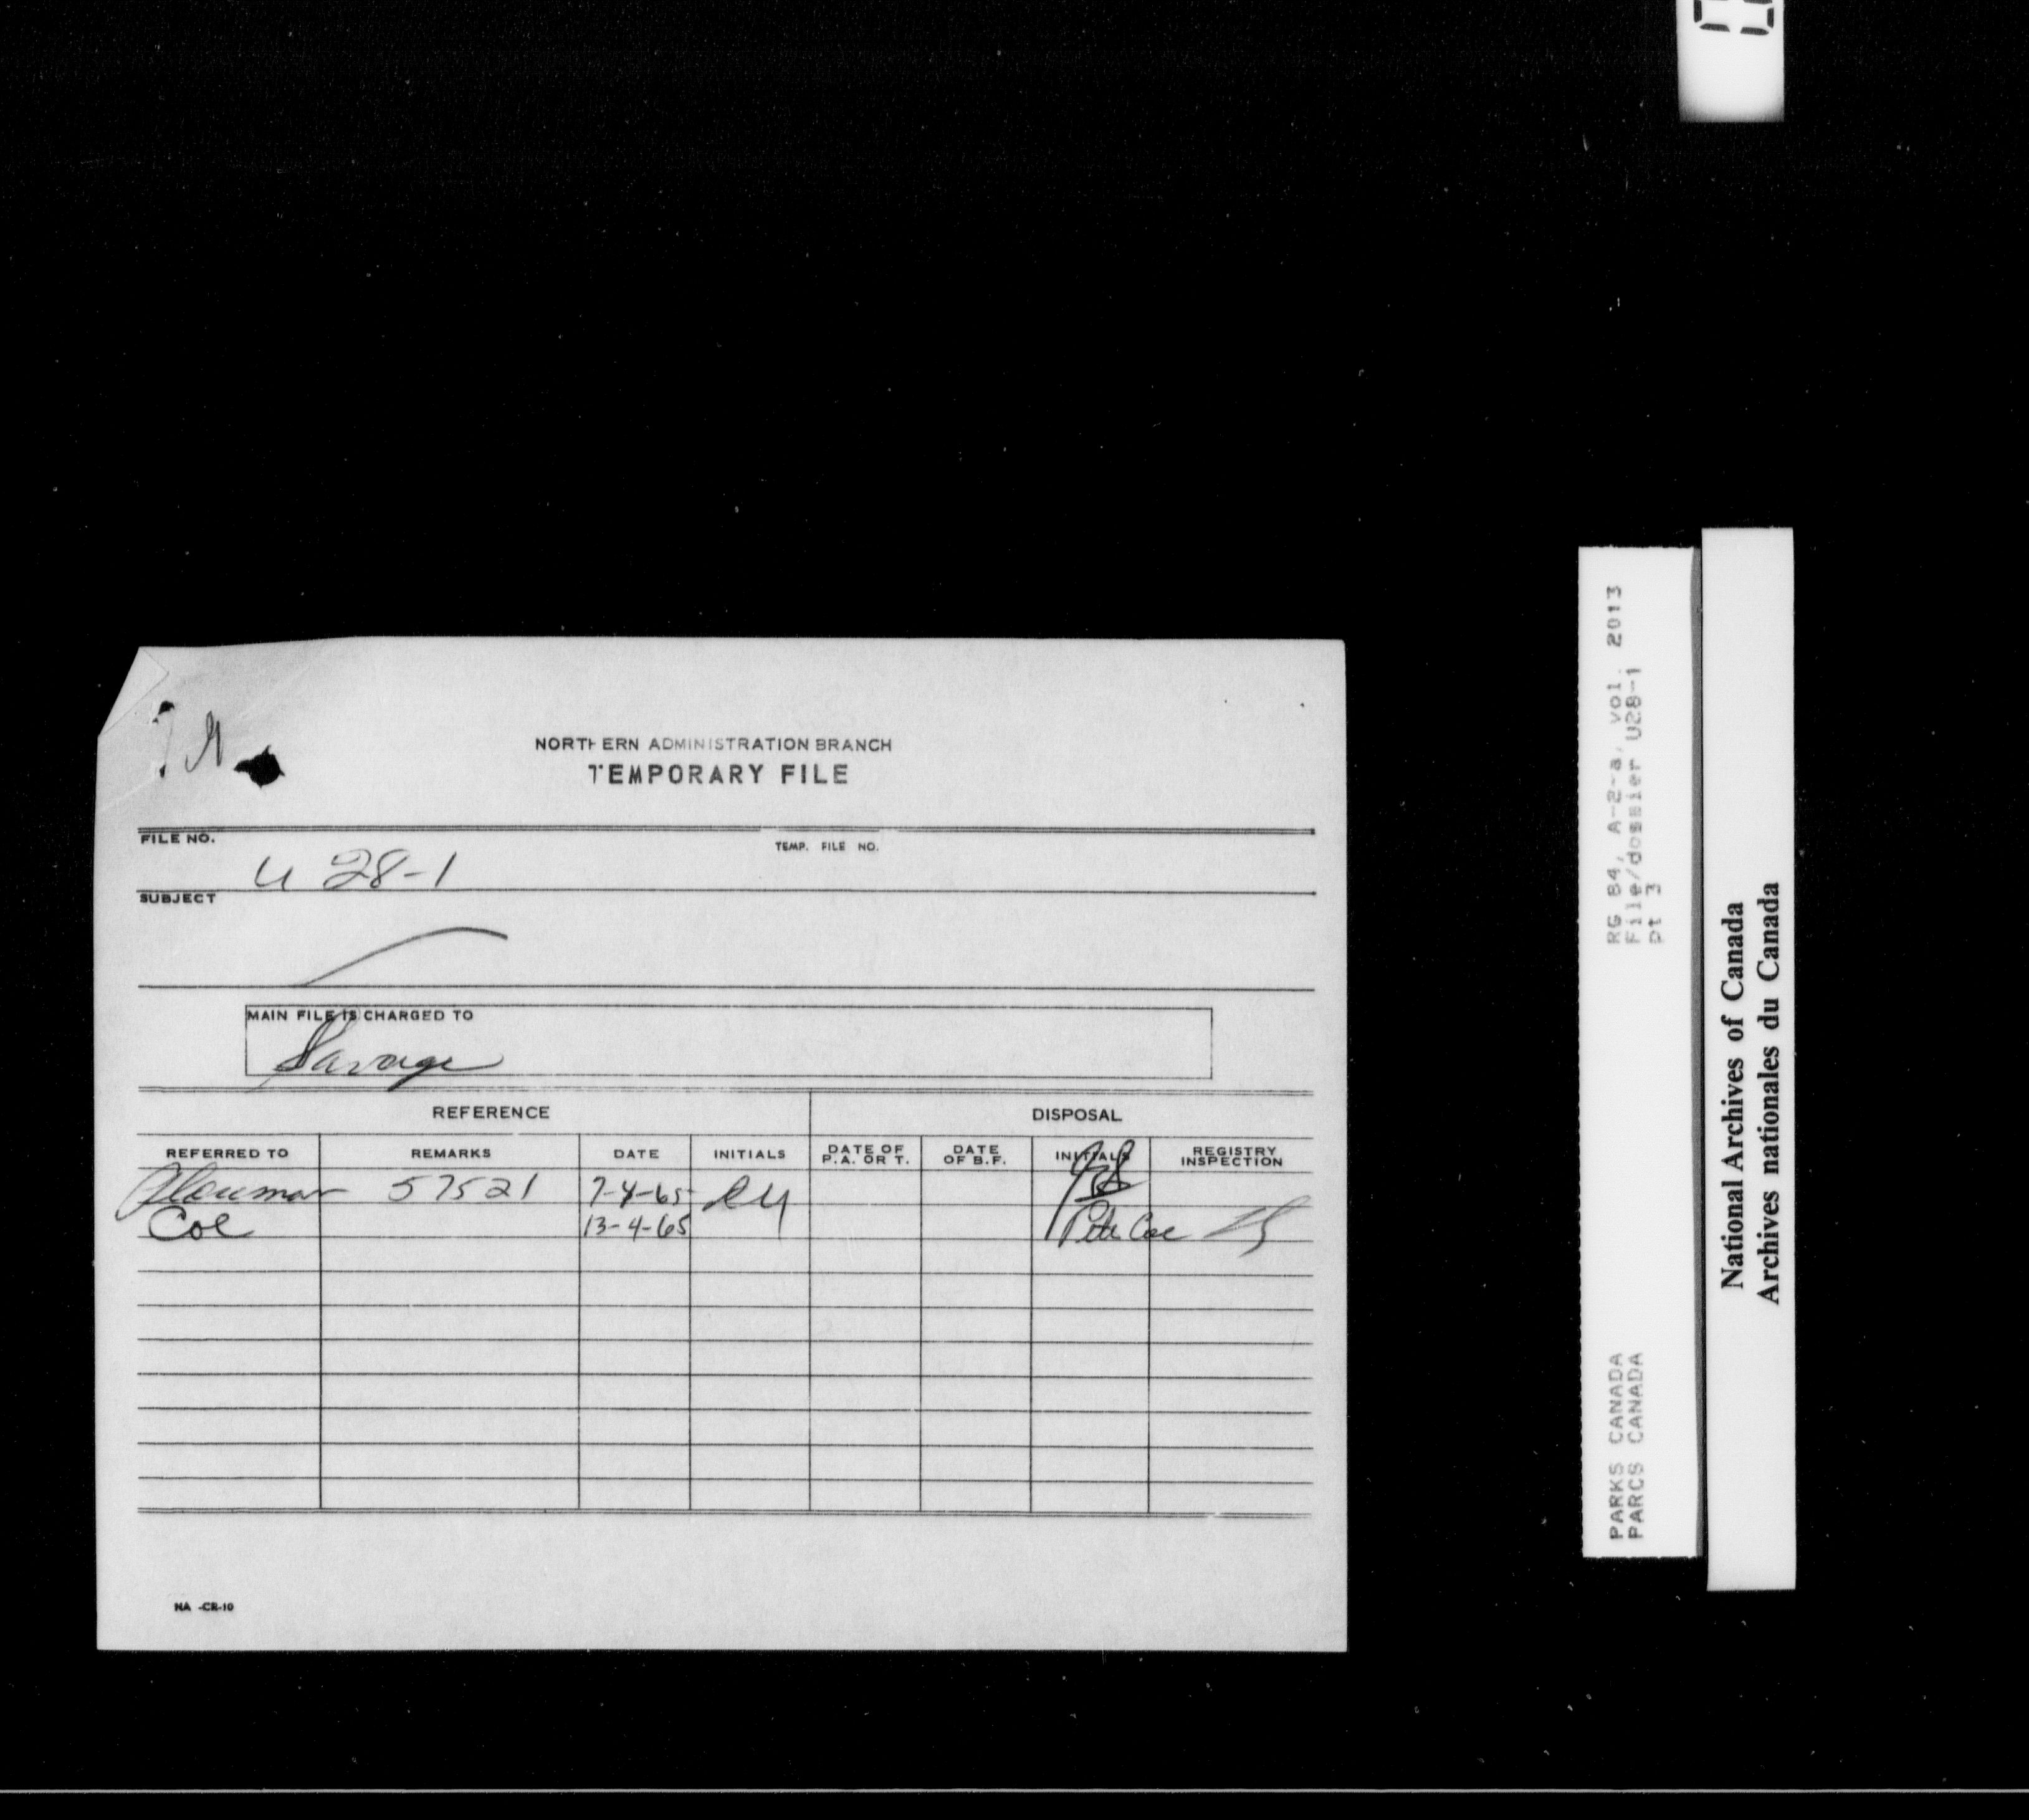 NORTHERN ADMINISTRATION BRANCH
TEMPORARY FILE
FILE NO.
TEMP. FILE NO.
U 28-1
SUBJECT
MAIN FILE IS CHARGED TO
Savage
REFERENCE
DISPOSAL
REFERRED TO
REMARKS
DATE
INITIALS
DATE OF P.A. OR T.
DATE OF B.F.
INITIALS
REGISTRY INSPECTION
57521
7-4-65
Coe
13-4-65
Pete Coe
NA -CR-10
RG 84, A-2-a, vol. 2013
File/dossier U28-1
pt 3
PARKS CANADA
PARCS CANADA
National Archives of Canada
Archives nationales du Canada